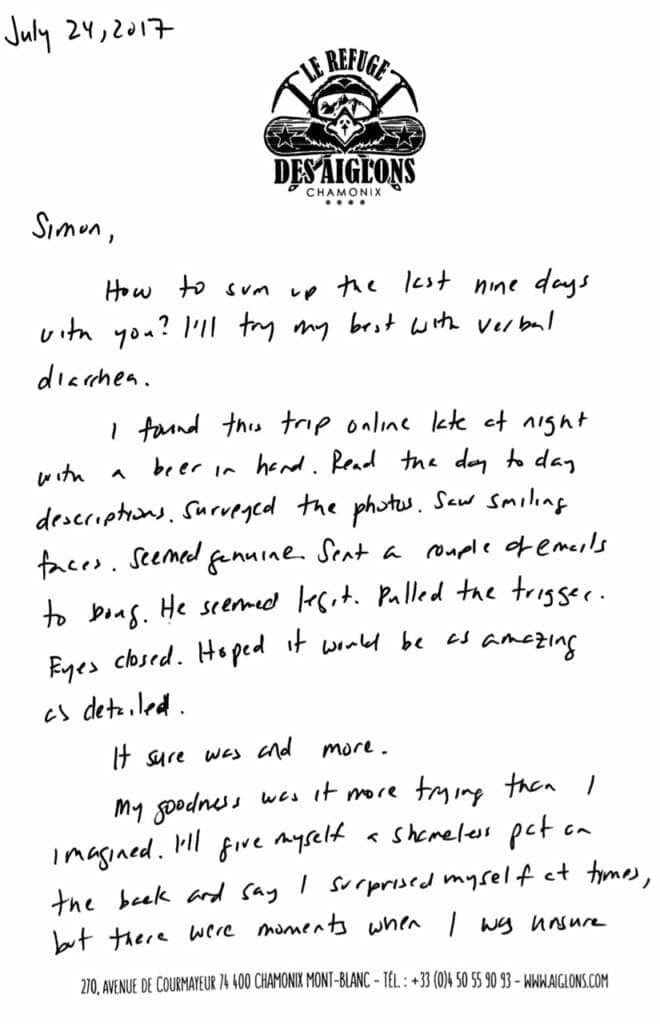 July 24, 2017
LE REFUGE
DES AIGLONS
CHAMONIX
Simon,
How to sum up the last nine days
with you? I'll try my best with verbal
diarrhea.
I found this trip online late at night
with a beer in hand. Read the day to day
descriptions. Surveyed the photos. Saw smiling
faces. Seemed genuine. Sent a couple of emails
to Doug. He seemed legit. Pulled the trigger.
Eyes closed. Hoped it would be as amazing
as detailed.
It sure was and more.
My goodness was it more trying than I
imagined. I'll give myself a shameless pat on
the back and say I surprised myself at times,
but there were moments when I was unsure
270, AVENUE DE COURMAYEUR 74 400 CHAMONIX MONT-BLANC - TÉL. : +33 (0)4 50 55 90 93 - WWW.AIGLONS.COM